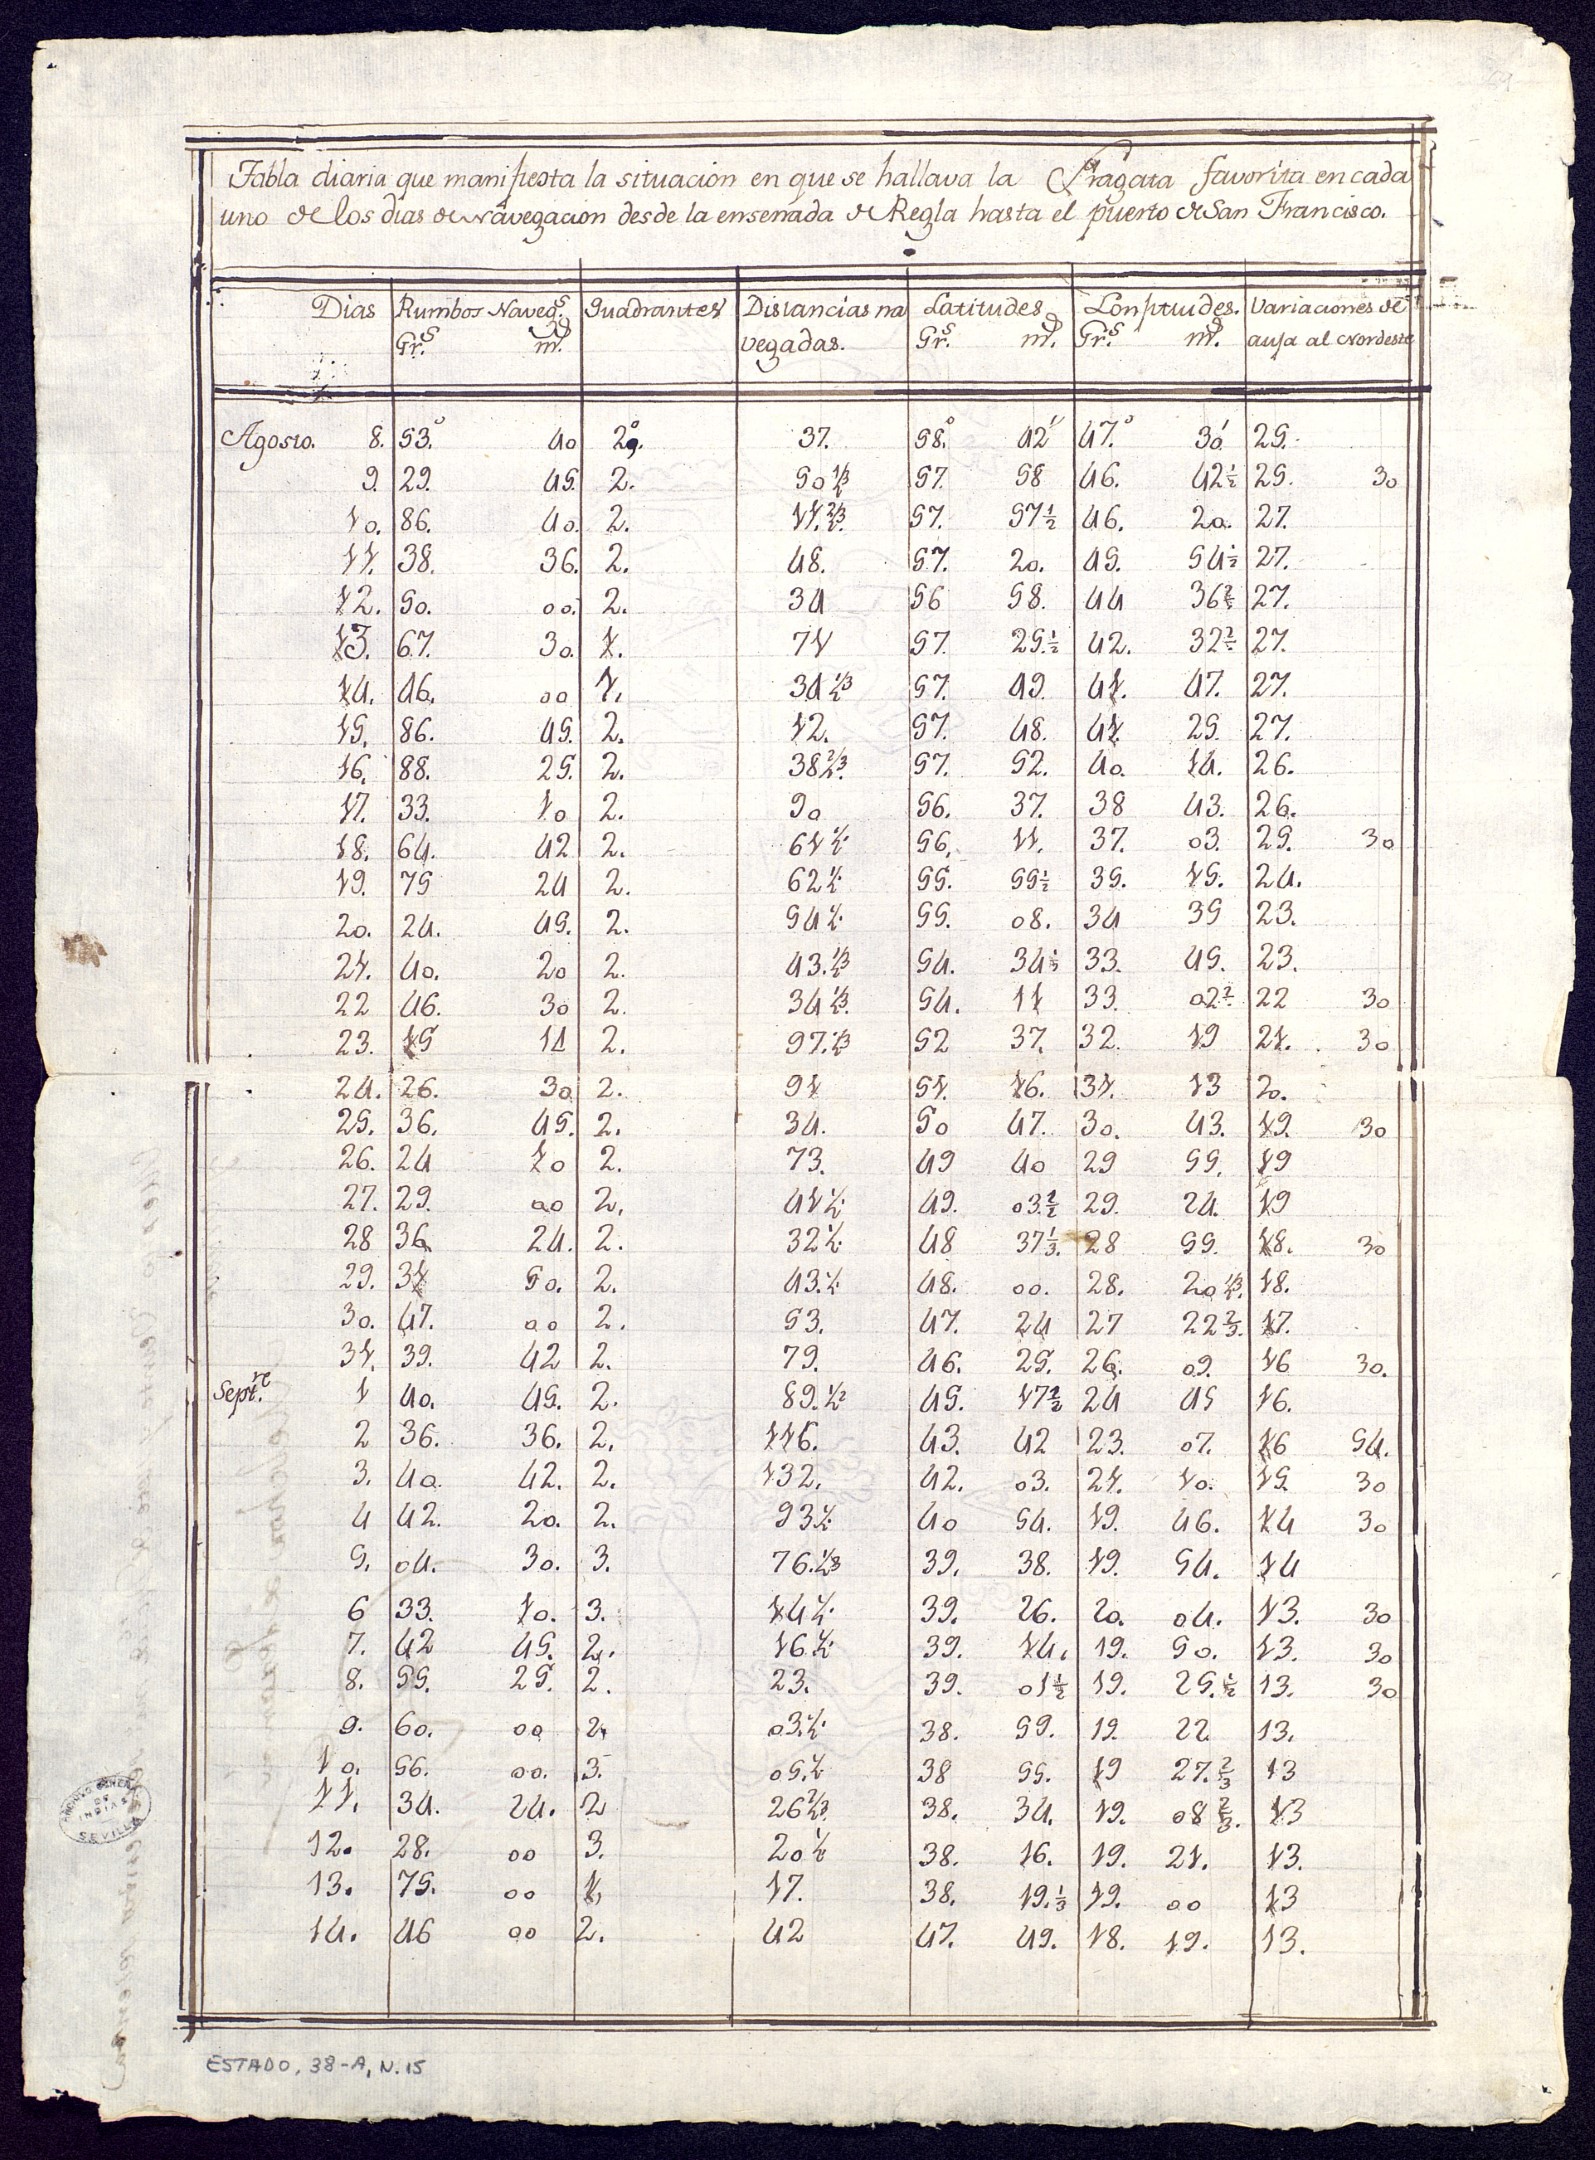 Tabla diaria que manifiesta la situacion en que se hallava la Fragata favorita en cada
uno de los dias de navegacion desde la ensenada de Regla hasta el puerto de San Francisco.
Dias Rumbos Naveg.s Quadrantes Distancias na Latitudes Longitudes. Variaciones de
Gr.s m.s vegadas. Gr.s m.s Gr.s m.s auja al Nordeste
Agosto. 8. 53.° 40 2° 37. 58.° 42' 47.° 30' 25.
9. 29. 45. 2. 50 1/3 57. 58 46. 42 1/2 25. 30
10. 86. 40. 2. 11. 2/3 57. 57 1/2 46. 20. 27.
11. 38. 36. 2. 48. 57. 20. 45. 54 1/2 27.
12. 50. 00. 2. 34 56 58. 44 36 27.
13. 67. 30. 1. 71 57. 25. 1/2 42. 32 27.
14. 46. 00 1. 34 1/3 57. 49. 41. 47. 27.
15. 86. 45. 2. 12. 57. 48. 41. 25. 27.
16. 88. 25. 2. 38 2/3 57. 52. 40. 14. 26.
17. 33. 10 2. 90 56. 37. 38 43. 26.
18. 64. 42 2. 61 1/2 56. 11. 37. 03. 25. 30
19. 75 24 2. 62 1/2 55. 55 1/2 35. 15. 24.
20. 24. 45. 2. 54 1/2 55. 08. 34 35 23.
21. 40. 20 2. 43. 1/3 54. 34 1/3 33. 45. 23.
22 46. 30 2. 34 1/3 54. 11 33. 02 22 30
23. 15 14 2. 97. 1/3 52 37. 32. 19 21. 30
24. 26. 30 2. 91 51. 16. 31. 13 20.
25. 36. 45. 2. 34. 50 47. 30. 43. 19. 30
26. 24 10 2. 73. 49 40 29 55. 19
27. 29. 00 2. 41 1/2 49. 03 1/2 29. 24. 19
28 36 24. 2. 32 1/2 48 37 1/3 28 55. 18. 30
29. 31 50. 2. 43. 1/2 48. 00. 28. 20 1/3 18.
30. 47. 00 2. 53. 47. 24 27 22 2/3 17.
31. 39. 42 2. 79. 46. 25. 26. 09. 16 30.
Sept.re 1 40. 45. 2. 89. 1/2 45. 17 1/2 24 45 16.
2 36. 36. 2. 116. 43. 42 23. 07. 16 54.
3. 40 42. 2. 132. 42. 03. 21. 10. 15. 30
4 42. 20. 2. 93 1/2 40 54. 19. 46. 14 30
5. 04. 30. 3. 76. 1/3 39. 38. 19. 54. 14
6 33. 10. 3. 14 1/2 39. 26. 20. 04. 13. 30
7. 42 45. 2. 16 1/2 39. 14. 19. 50. 13. 30
8. 55. 25. 2. 23. 39. 01 1/2 19. 25. 1/2 13. 30
9. 60. 00 2. 03. 1/2 38. 59. 19. 22 13.
10. 56. 00. 3. 05. 1/2 38 55. 19 27. 2/3 13
11. 34. 24. 2 26 2/3 38. 34. 19. 08 2/3 13
12. 28. 00 3. 20 1/2 38. 16. 19. 21. 13.
13. 75. 00 1. 17. 38. 19. 1/3 19. 00 13
14. 46 00 2. 42 47. 49. 18. 19. 13.
ARCHIVO GENERAL DE INDIAS SEVILLA
ESTADO, 38-A, N. 15